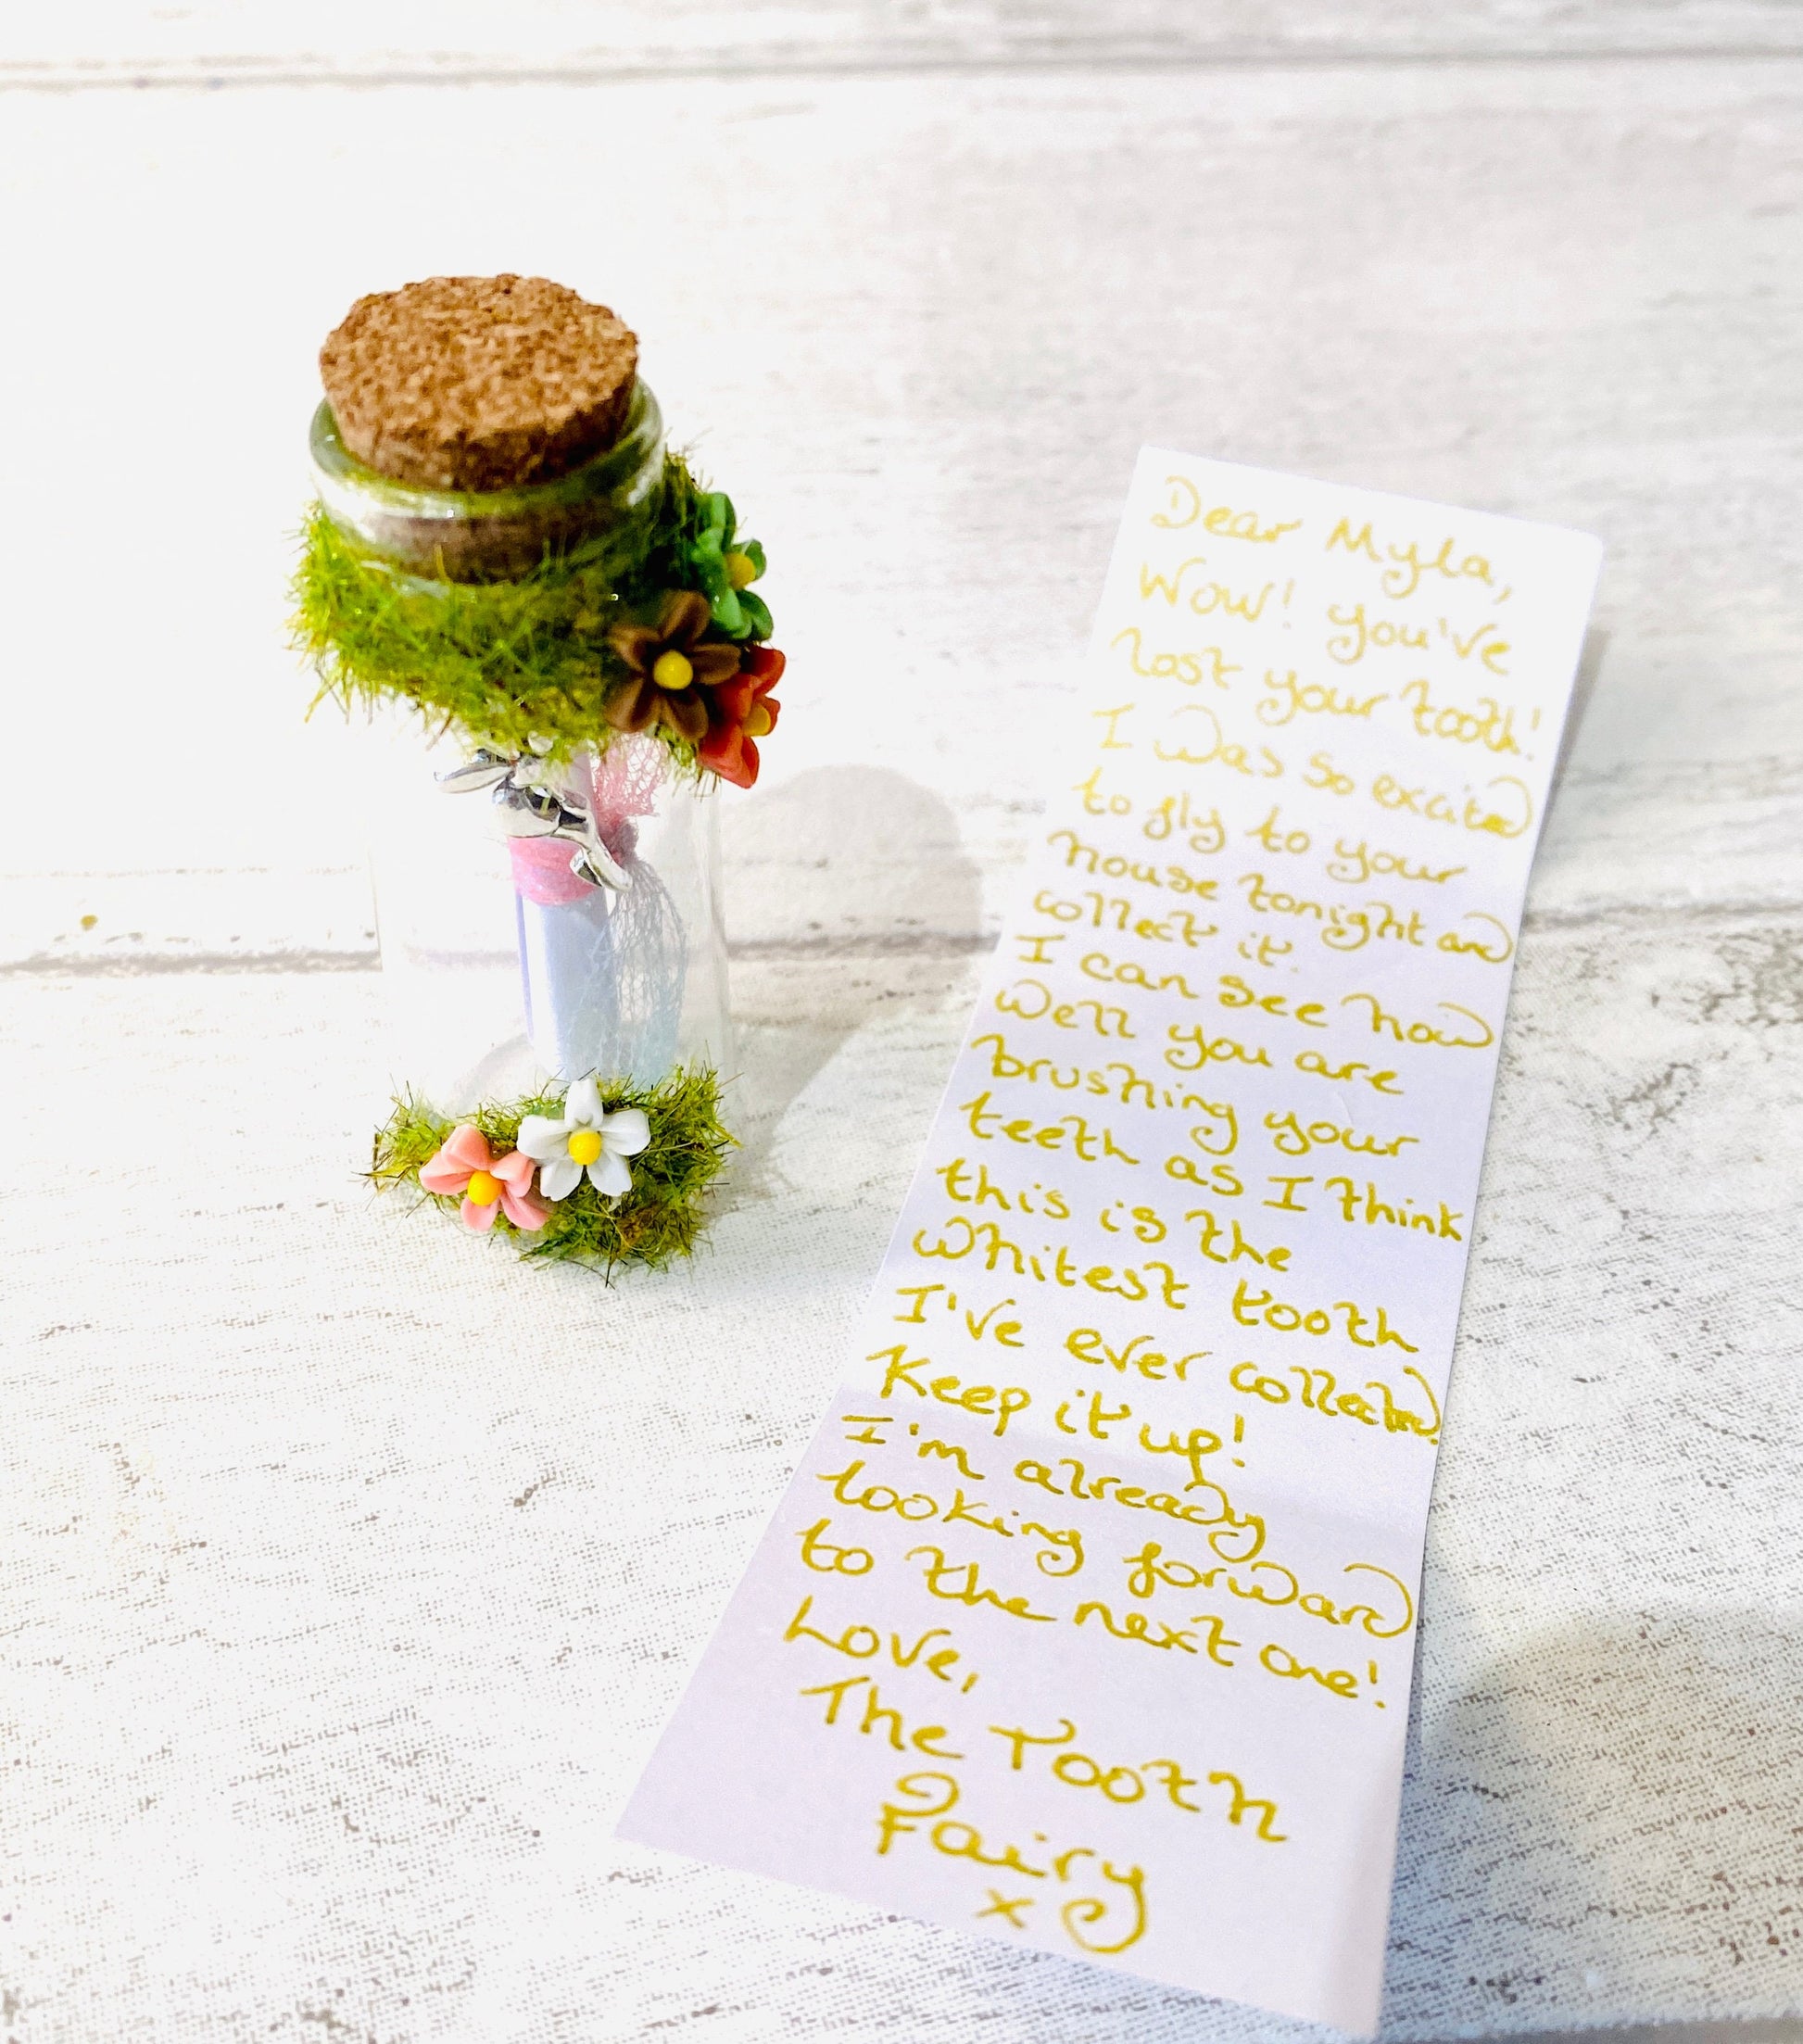 Dear Myla,
Wow! You've
lost your tooth!
I was so excited
to fly to your
house tonight and
collect it.
I can see how
well you are
brushing your
teeth as I think
this is the
whitest tooth
I've ever collected!
Keep it up!
I'm already
looking forward
to the next one!
Love,
The Tooth
Fairy
x